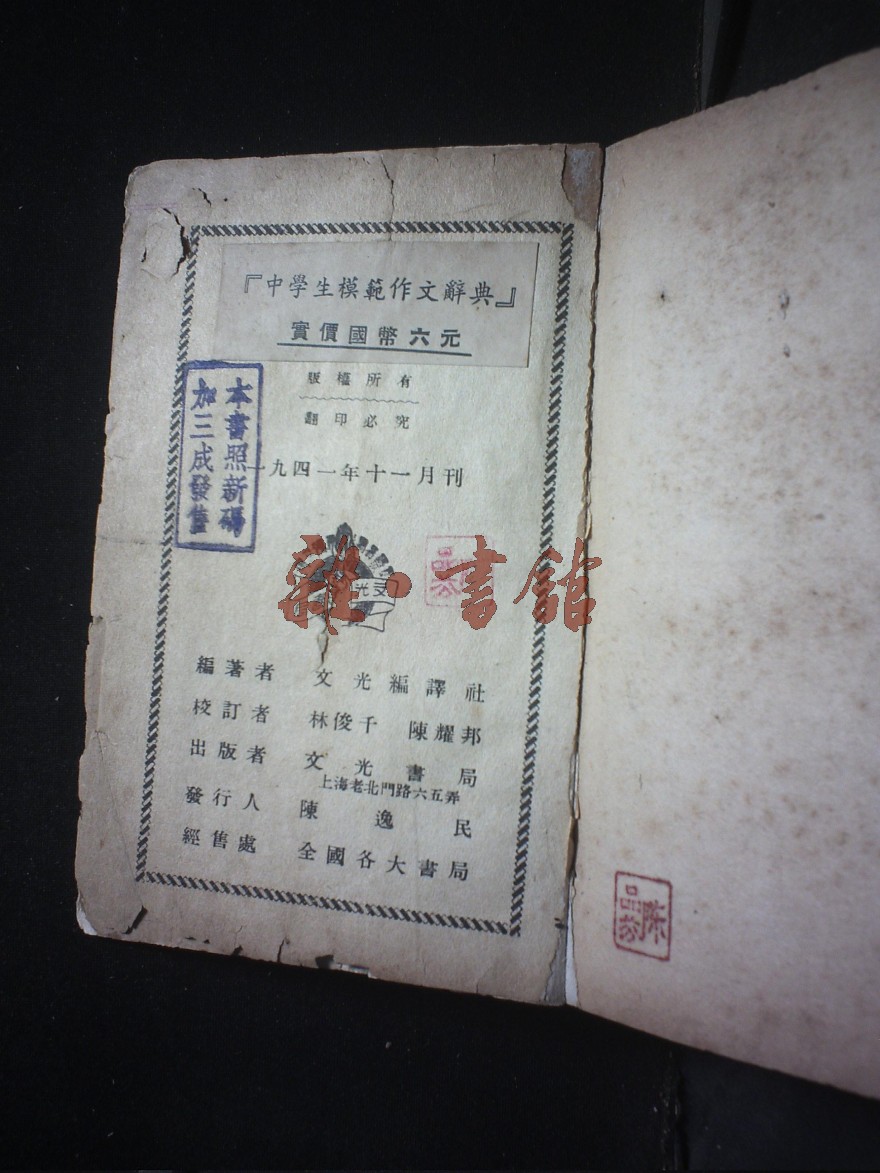 『中學生模範作文辭典』
實價國幣六元
版權所有
翻印必究
一九四一年十一月刊
本書照新碼
加三成發售
文光
雜·書館
編著者 文光編譯社
校訂者 林俊千 陳耀邦
出版者 文光書局
上海老北門路六五弄
發行人 陳逸民
經售處 全國各大書局